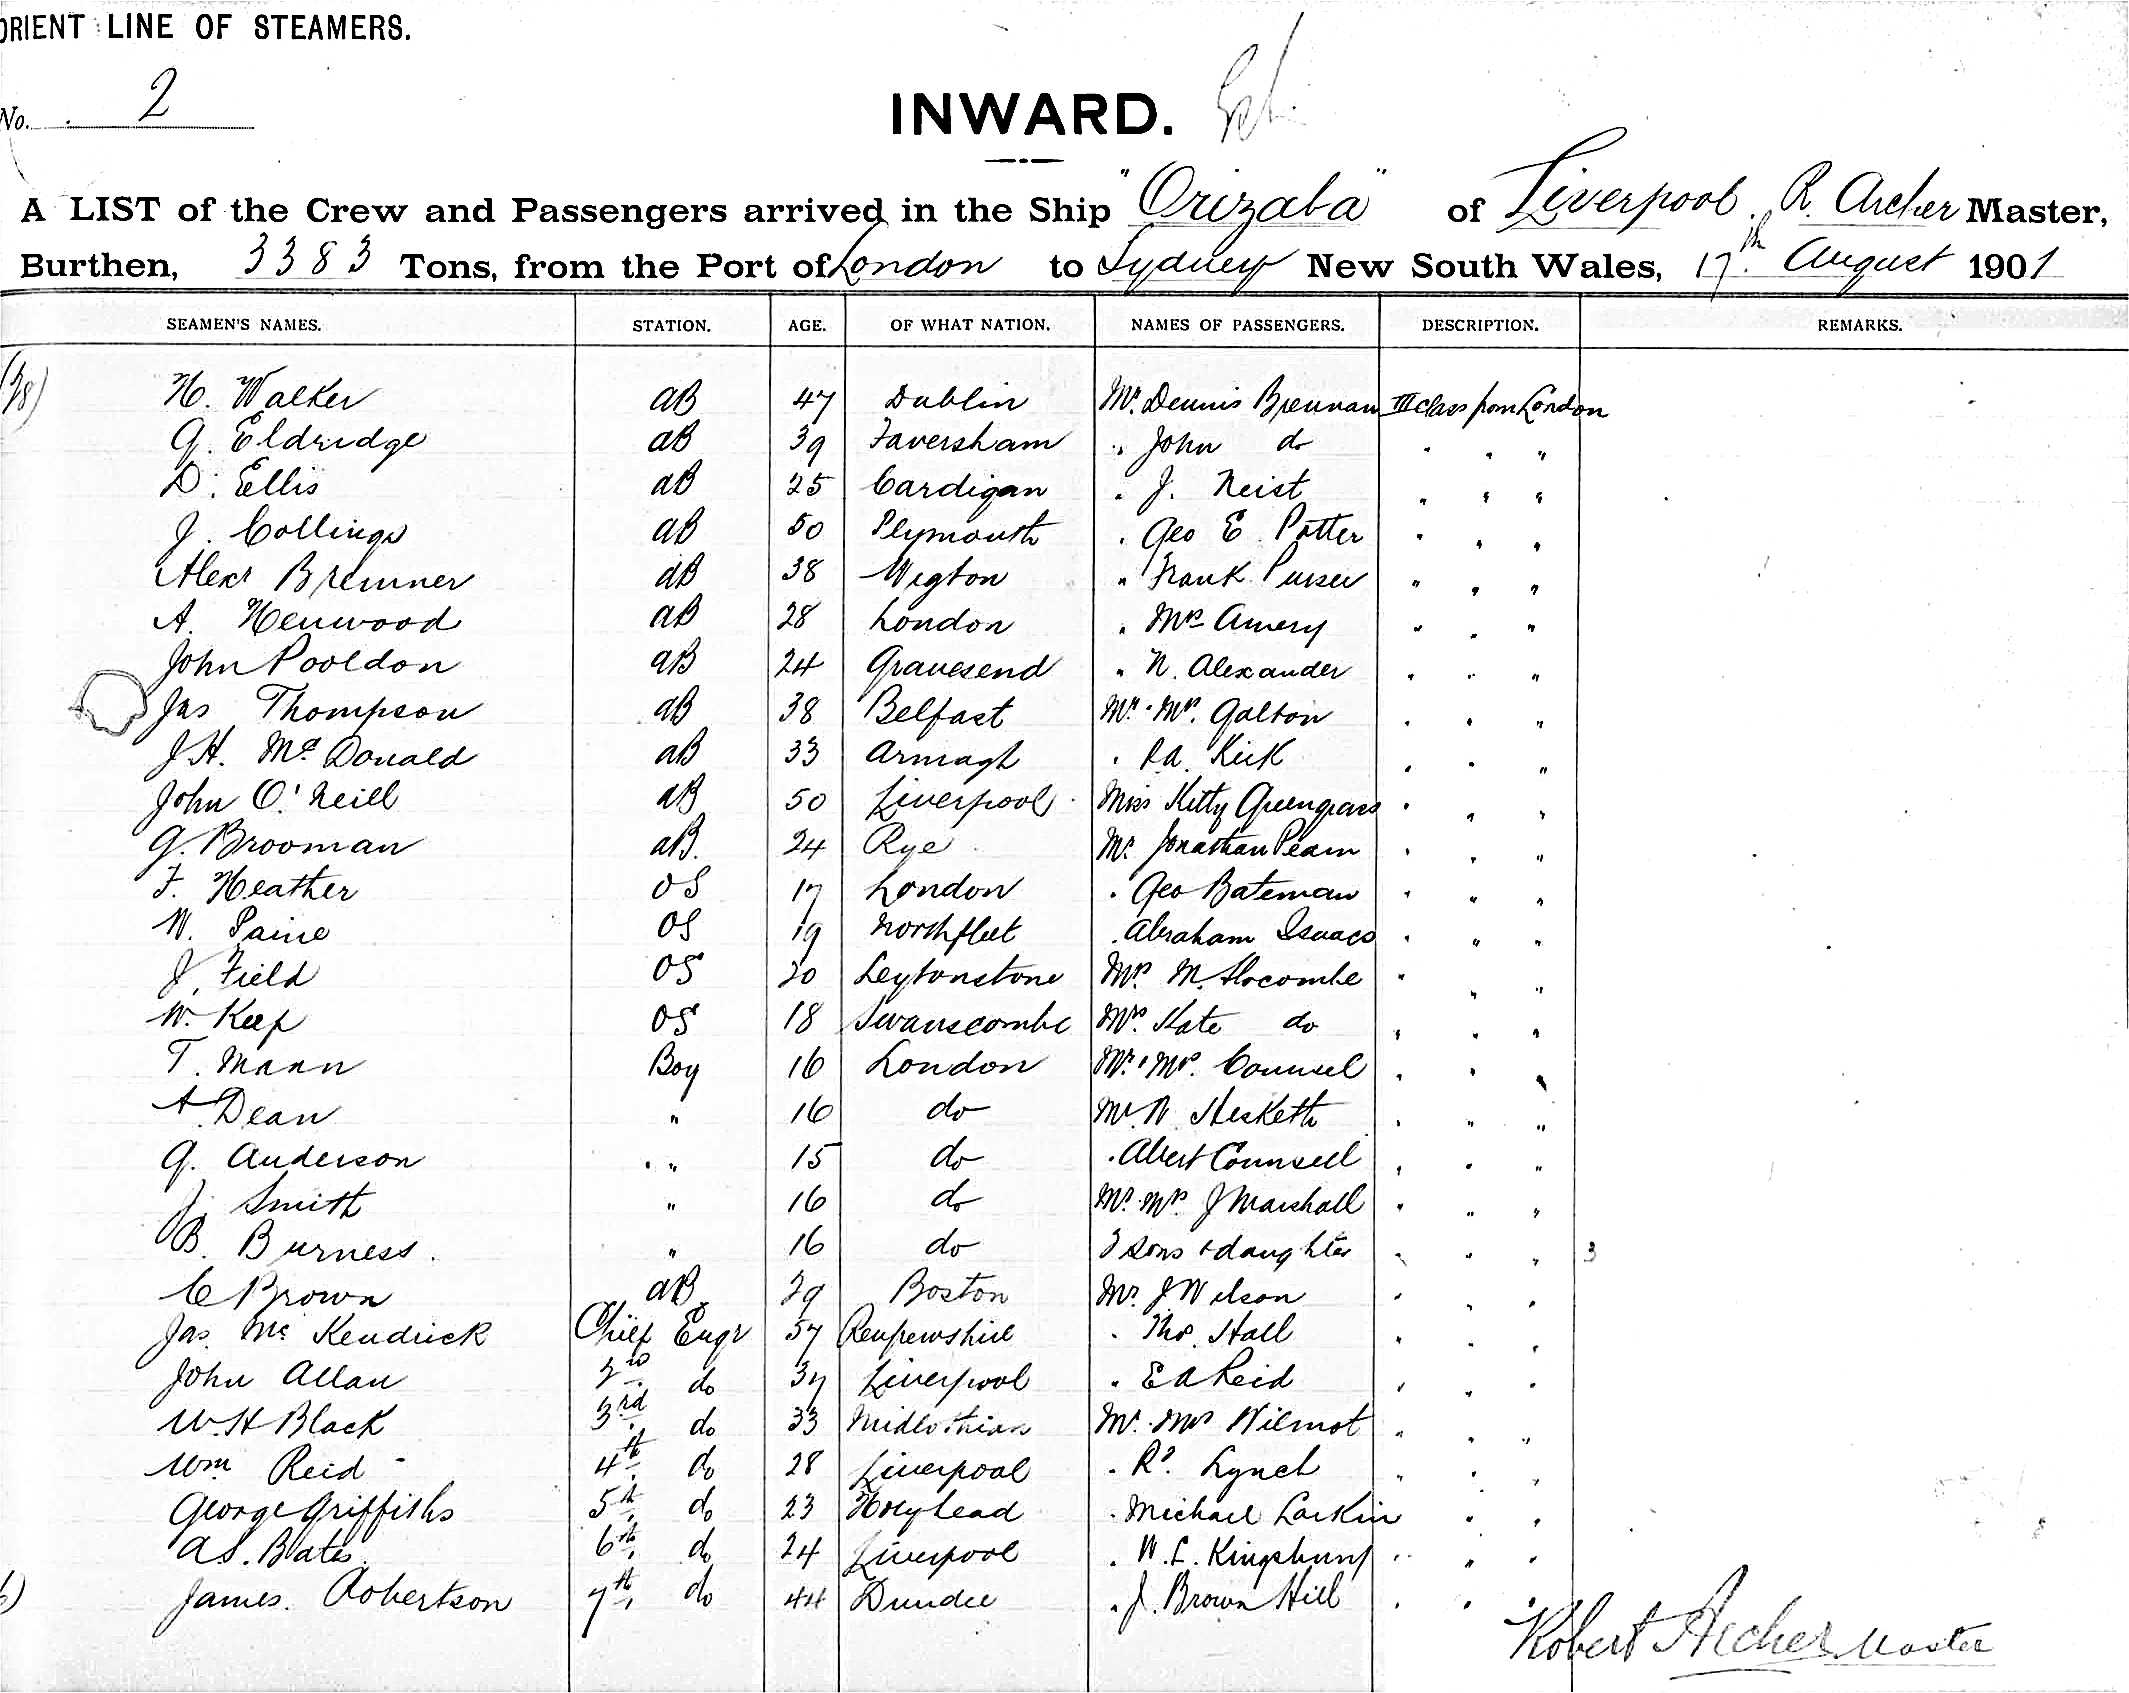 ORIENT LINE OF STEAMERS.
No. 2
INWARD.
A LIST of the Crew and Passengers arrived in the Ship "Orizaba" of Liverpool. R. Archer Master,
Burthen, 3383 Tons, from the Port of London to Sydney New South Wales, 17th August 1901
SEAMEN'S NAMES. STATION. AGE. OF WHAT NATION. NAMES OF PASSENGERS. DESCRIPTION. REMARKS.
H. Walker AB 47 Dublin Mr. Dennis Brennan III class from London
G. Eldridge AB 39 Faversham " John do " " "
D. Ellis AB 25 Cardigan " J. Neist " " "
J. Collings AB 50 Plymouth " Geo E. Potter " " "
Alexr Bremner AB 38 Wigton " Frank Purser " " "
A. Henwood AB 28 London " Mrs Amery " " "
John Pooldon AB 24 Gravesend " N. Alexander " " "
Jas Thompson AB 38 Belfast Mr. Mrs. Galton " " "
J.H. McDonald AB 33 Armagh " Kick " " "
John O'Neill AB 50 Liverpool Miss Kitty Greengrass " " "
G. Brooman AB. 24 Rye Mr. Jonathan Pearn " " "
F. Heather OS 17 London " Geo Bateman " " "
W. Paine OS 19 Northfleet " Abraham Isaacs " " "
J. Field OS 20 Leytonstone Mrs. M. Slocombe " " "
W. Keep OS 18 Swanscombe Mrs. Kate do " " "
T. Mann Boy 16 London Mr. Mrs. Counsel " " "
A. Dean " 16 do Mr. Hesketh " " "
G. Anderson " 15 do " Albert Counsell " " "
J. Smith " 16 do Mr. Mrs. J Marshall " " "
B. Burness. " 16 do 3 sons & daughter " " " 3
C Brown AB 29 Boston Mr. J Wilson " " "
Jas. Mc Kendrick Chief Engr 57 Renfrewshire " Thos. Hall " "
John Allan 2nd do 37 Liverpool " E A Reid " " "
W.H Black 3rd do 33 Midlothian Mr. Mrs Wilmot " " "
Wm Reid 4th do 28 Liverpool " Rd. Lynch " " "
George Griffiths 5th do 23 Holyhead " Michael Larkin " "
A.S. Bates 6th do 24 Liverpool " W.L. Kingsbury " " "
James. Robertson 7th do 44 Dundee " J. Brown Hill " " "
Robert Archer Master